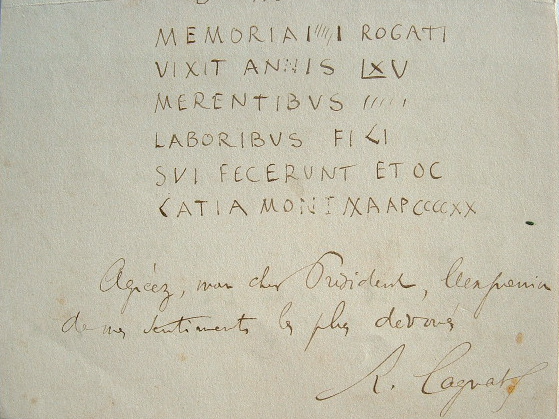 MEMORIAI ////I ROGATI
VIXIT ANNIS LXV
MERENTIBVS /////
LABORIBVS FILI
SVI FECERVNT ET OC
CATIA MONI XAAPCCCCXX
Agréez, mon cher Président, l'expression
de mes sentiments les plus dévoués
R. Cagnat